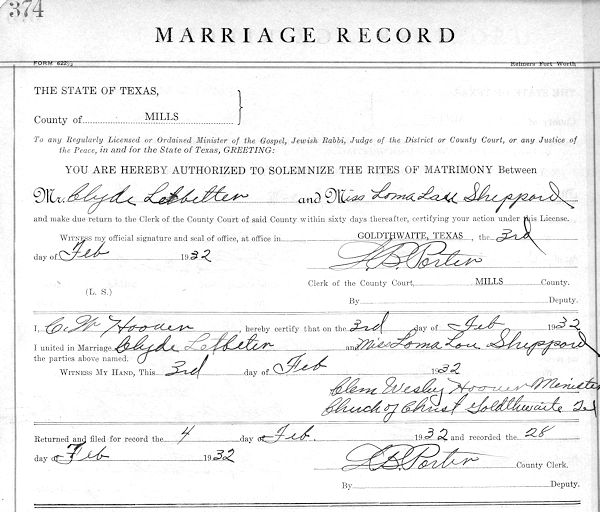 374
MARRIAGE RECORD
FORM 622½ Reimers Fort Worth
THE STATE OF TEXAS,
County of MILLS
To any Regularly Licensed or Ordained Minister of the Gospel, Jewish Rabbi, Judge of the District or County Court, or any Justice of the Peace, in and for the State of Texas, GREETING:
YOU ARE HEREBY AUTHORIZED TO SOLEMNIZE THE RITES OF MATRIMONY Between
Mr. Clyde Letbetter and Miss Loma Lou Sheppord
and make due return to the Clerk of the County Court of said County within sixty days thereafter, certifying your action under this License.
WITNESS my official signature and seal of office, at office in GOLDTHWAITE, TEXAS, the 3rd
day of Feb 1932 L. B. Porter
Clerk of the County Court, MILLS County.
(L. S.)
By Deputy.
I, C. W Hoover hereby certify that on the 3rd day of Feb 1932
I united in Marriage Clyde Letbeter and Miss Loma Lou Sheppord
the parties above named.
WITNESS MY HAND, This 3rd day of Feb 1932
Clem Wesley Hoover Minister
Church of Christ Goldthwaite
Returned and filed for record the 4 day of Feb. 1932 and recorded the 28
day of Feb 1932 L B Porter County Clerk.
By Deputy.